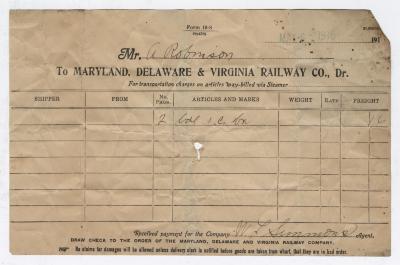 Form 18-S
191
Mr. A Robinson
To MARYLAND, DELAWARE & VIRGINIA RAILWAY CO., Dr.
For transportation charges on articles way-billed via Steamer
SHIPPER FROM No. Pkgs. ARTICLES AND MARKS WEIGHT RATE FREIGHT
2
Received payment for the Company W Simmons Agent.
DRAW CHECK TO THE ORDER OF THE MARYLAND, DELAWARE AND VIRGINIA RAILWAY COMPANY.
No claims for damages will be allowed unless delivery clerk is notified before goods are taken from wharf, that they are in bad order.